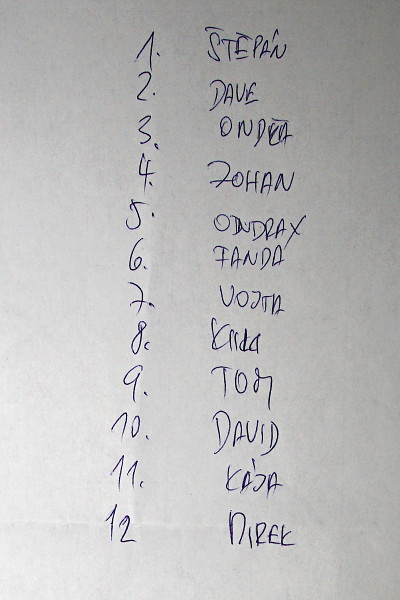 1. ŠTĚPÁN
2. DAVE
3. ONDRA
4. JOHAN
5. ONDRAX
6. FANDA
7. VOJTA
8.
9. TOM
10. DAVID
11. KÁJA
12 MIREK